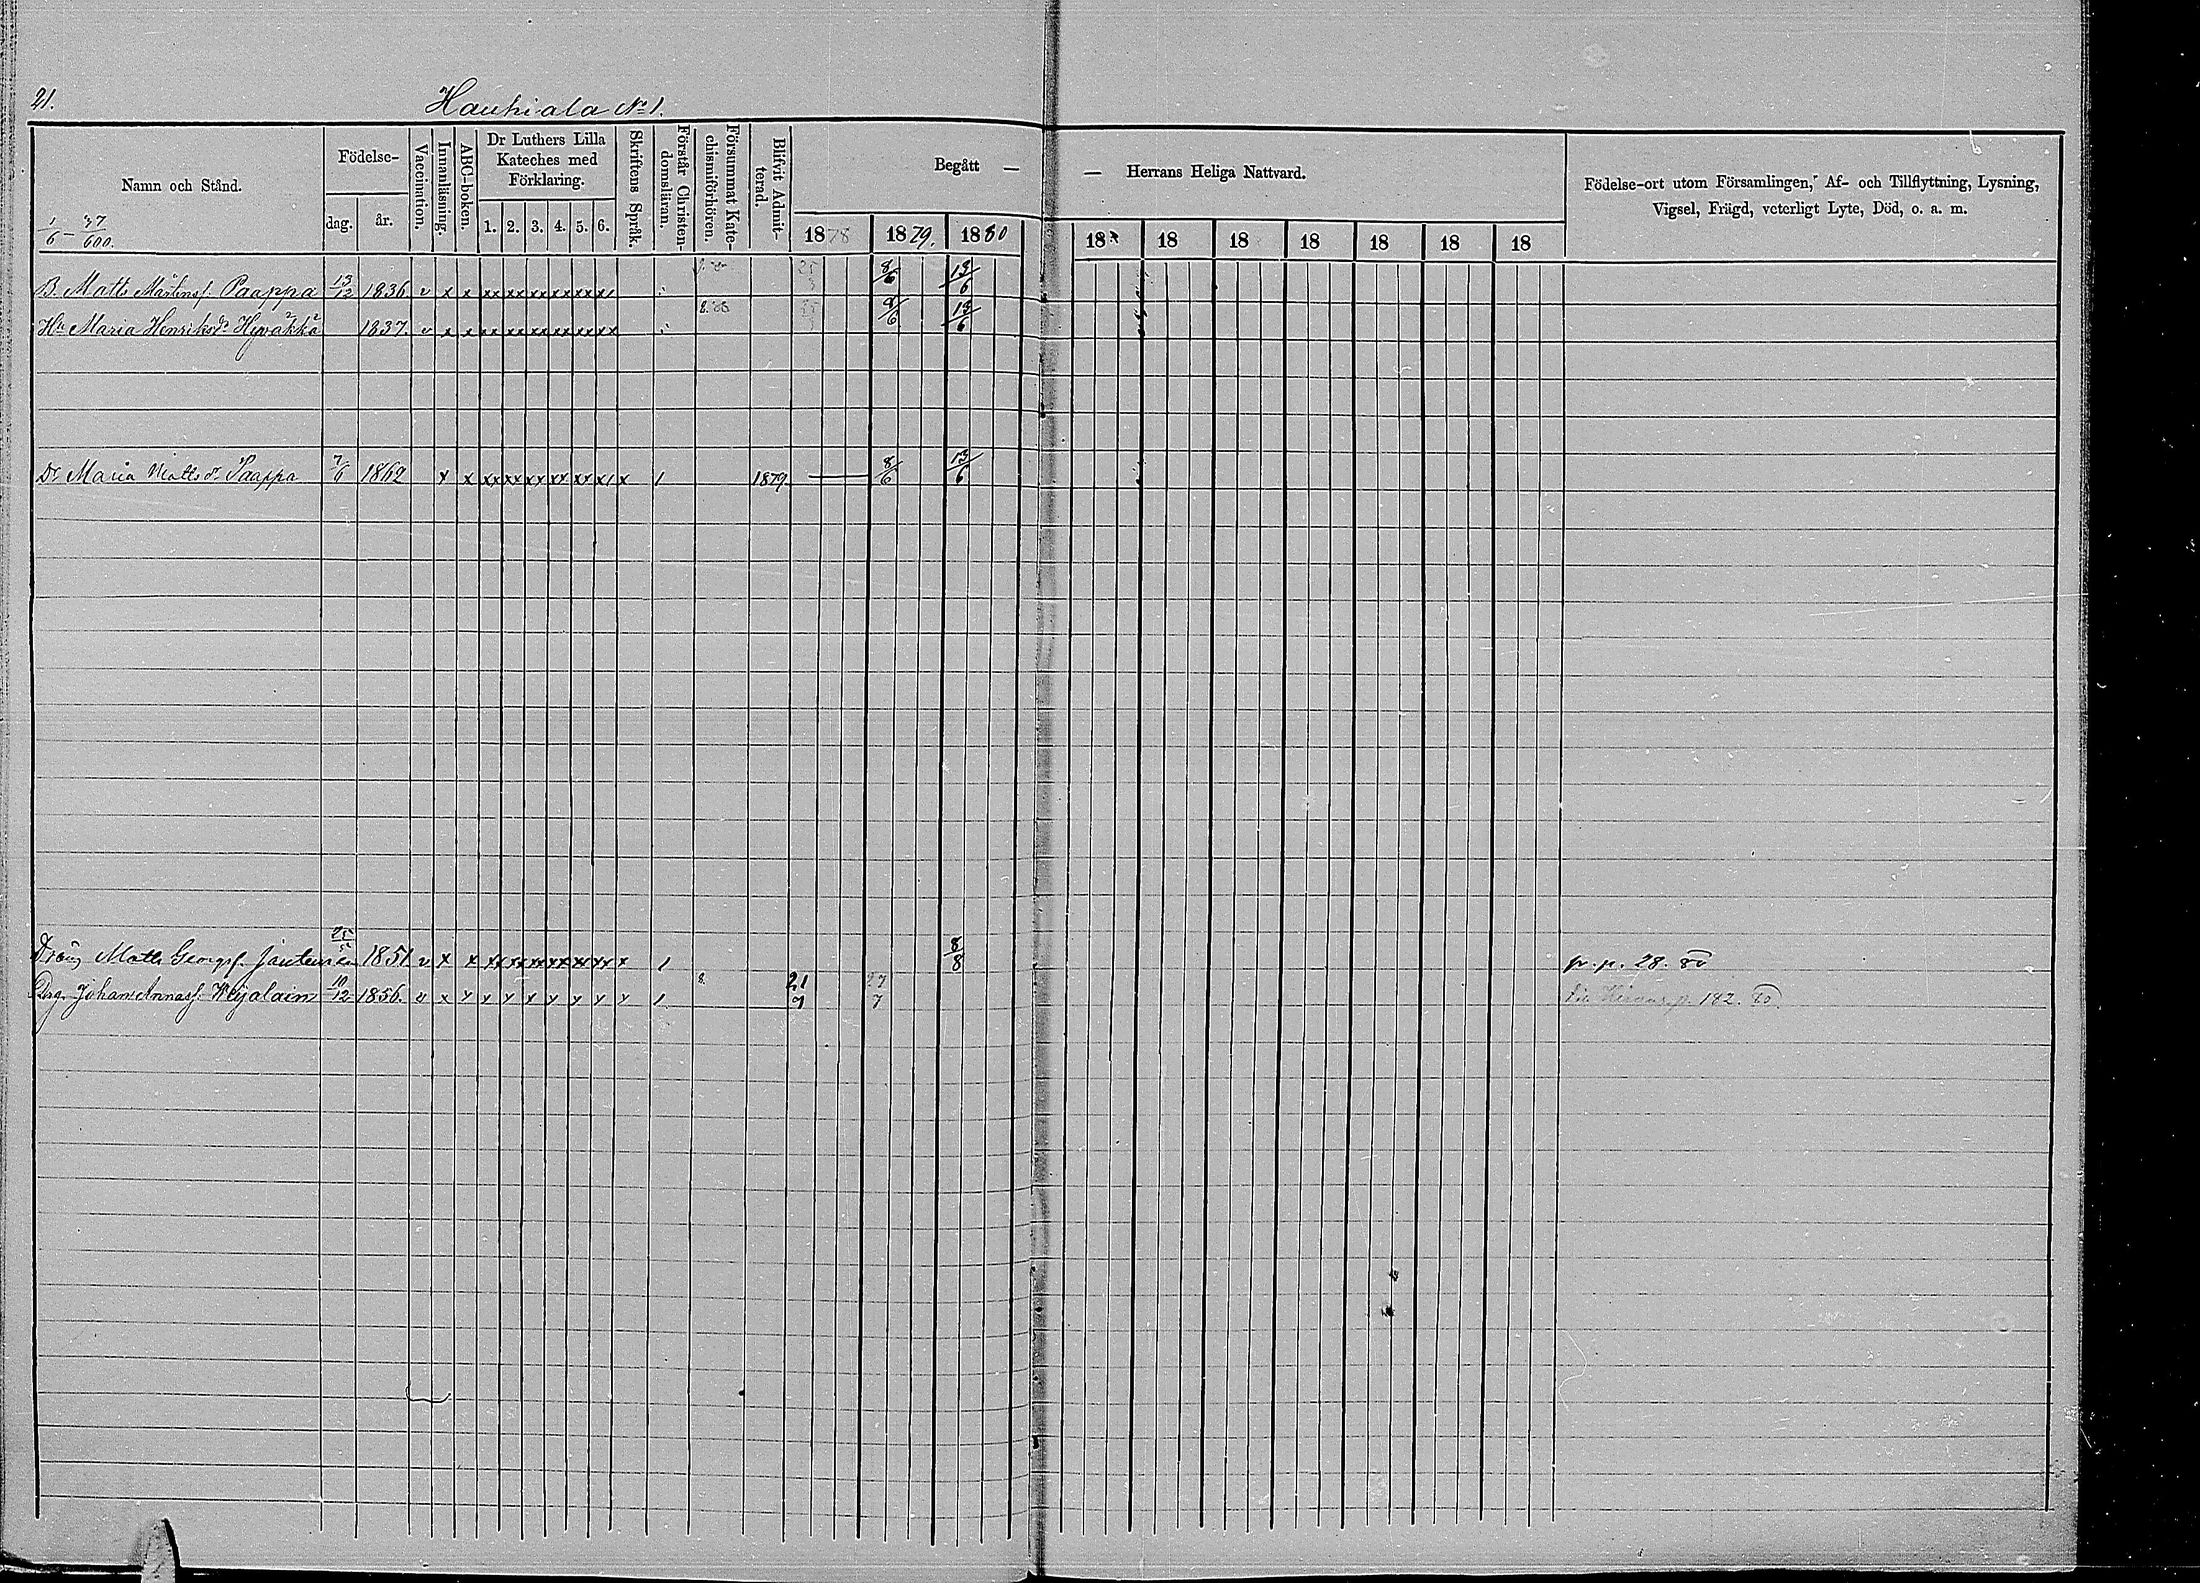 21.
Hauhiala No 1.
Namn och Stånd.
1/6 - 37/600.
Födelse-
dag.
år.
Vaccination.
Innanläsning.
ABC-boken.
Dr Luthers Lilla
Kateches med
Förklaring.
1. 2. 3. 4. 5. 6.
Skriftens Språk.
Förstår Christen-
domsläran.
Försummat Kate-
chismiförhören.
Blifvit Admit-
terad.
Begått —
— Herrans Heliga Nattvard.
1878 1879. 1880 18 18 18 18 18 18 18
Födelse-ort utom Församlingen, Af- och Tillflyttning, Lysning,
Vigsel, Frägd, veterligt Lyte, Död, o. a. m.
B. Matts Mårtensf. Paappa 13/12 1836 v x x xx xx xx xx xx x1 8/6 13/6
Hu Maria Henriksdr Hyväkkä 1837. v x x xx xx xx xx xx xx 8/6 13/6
Dr Maria Mattsdr Paappa 7/6 1862 x x xx xx xx xx xx x1 x 1 1879 — 8/6 13/6
Dräng Matts Georgsf. 25 1851 v x x xx xx xx xx xx xx x 1 8/8 p. p. 28. 80
Drg. Johan Annasf. 10/12 1856. v x x x x x x x x x 1 8. 21/7 27/7 182. 80.